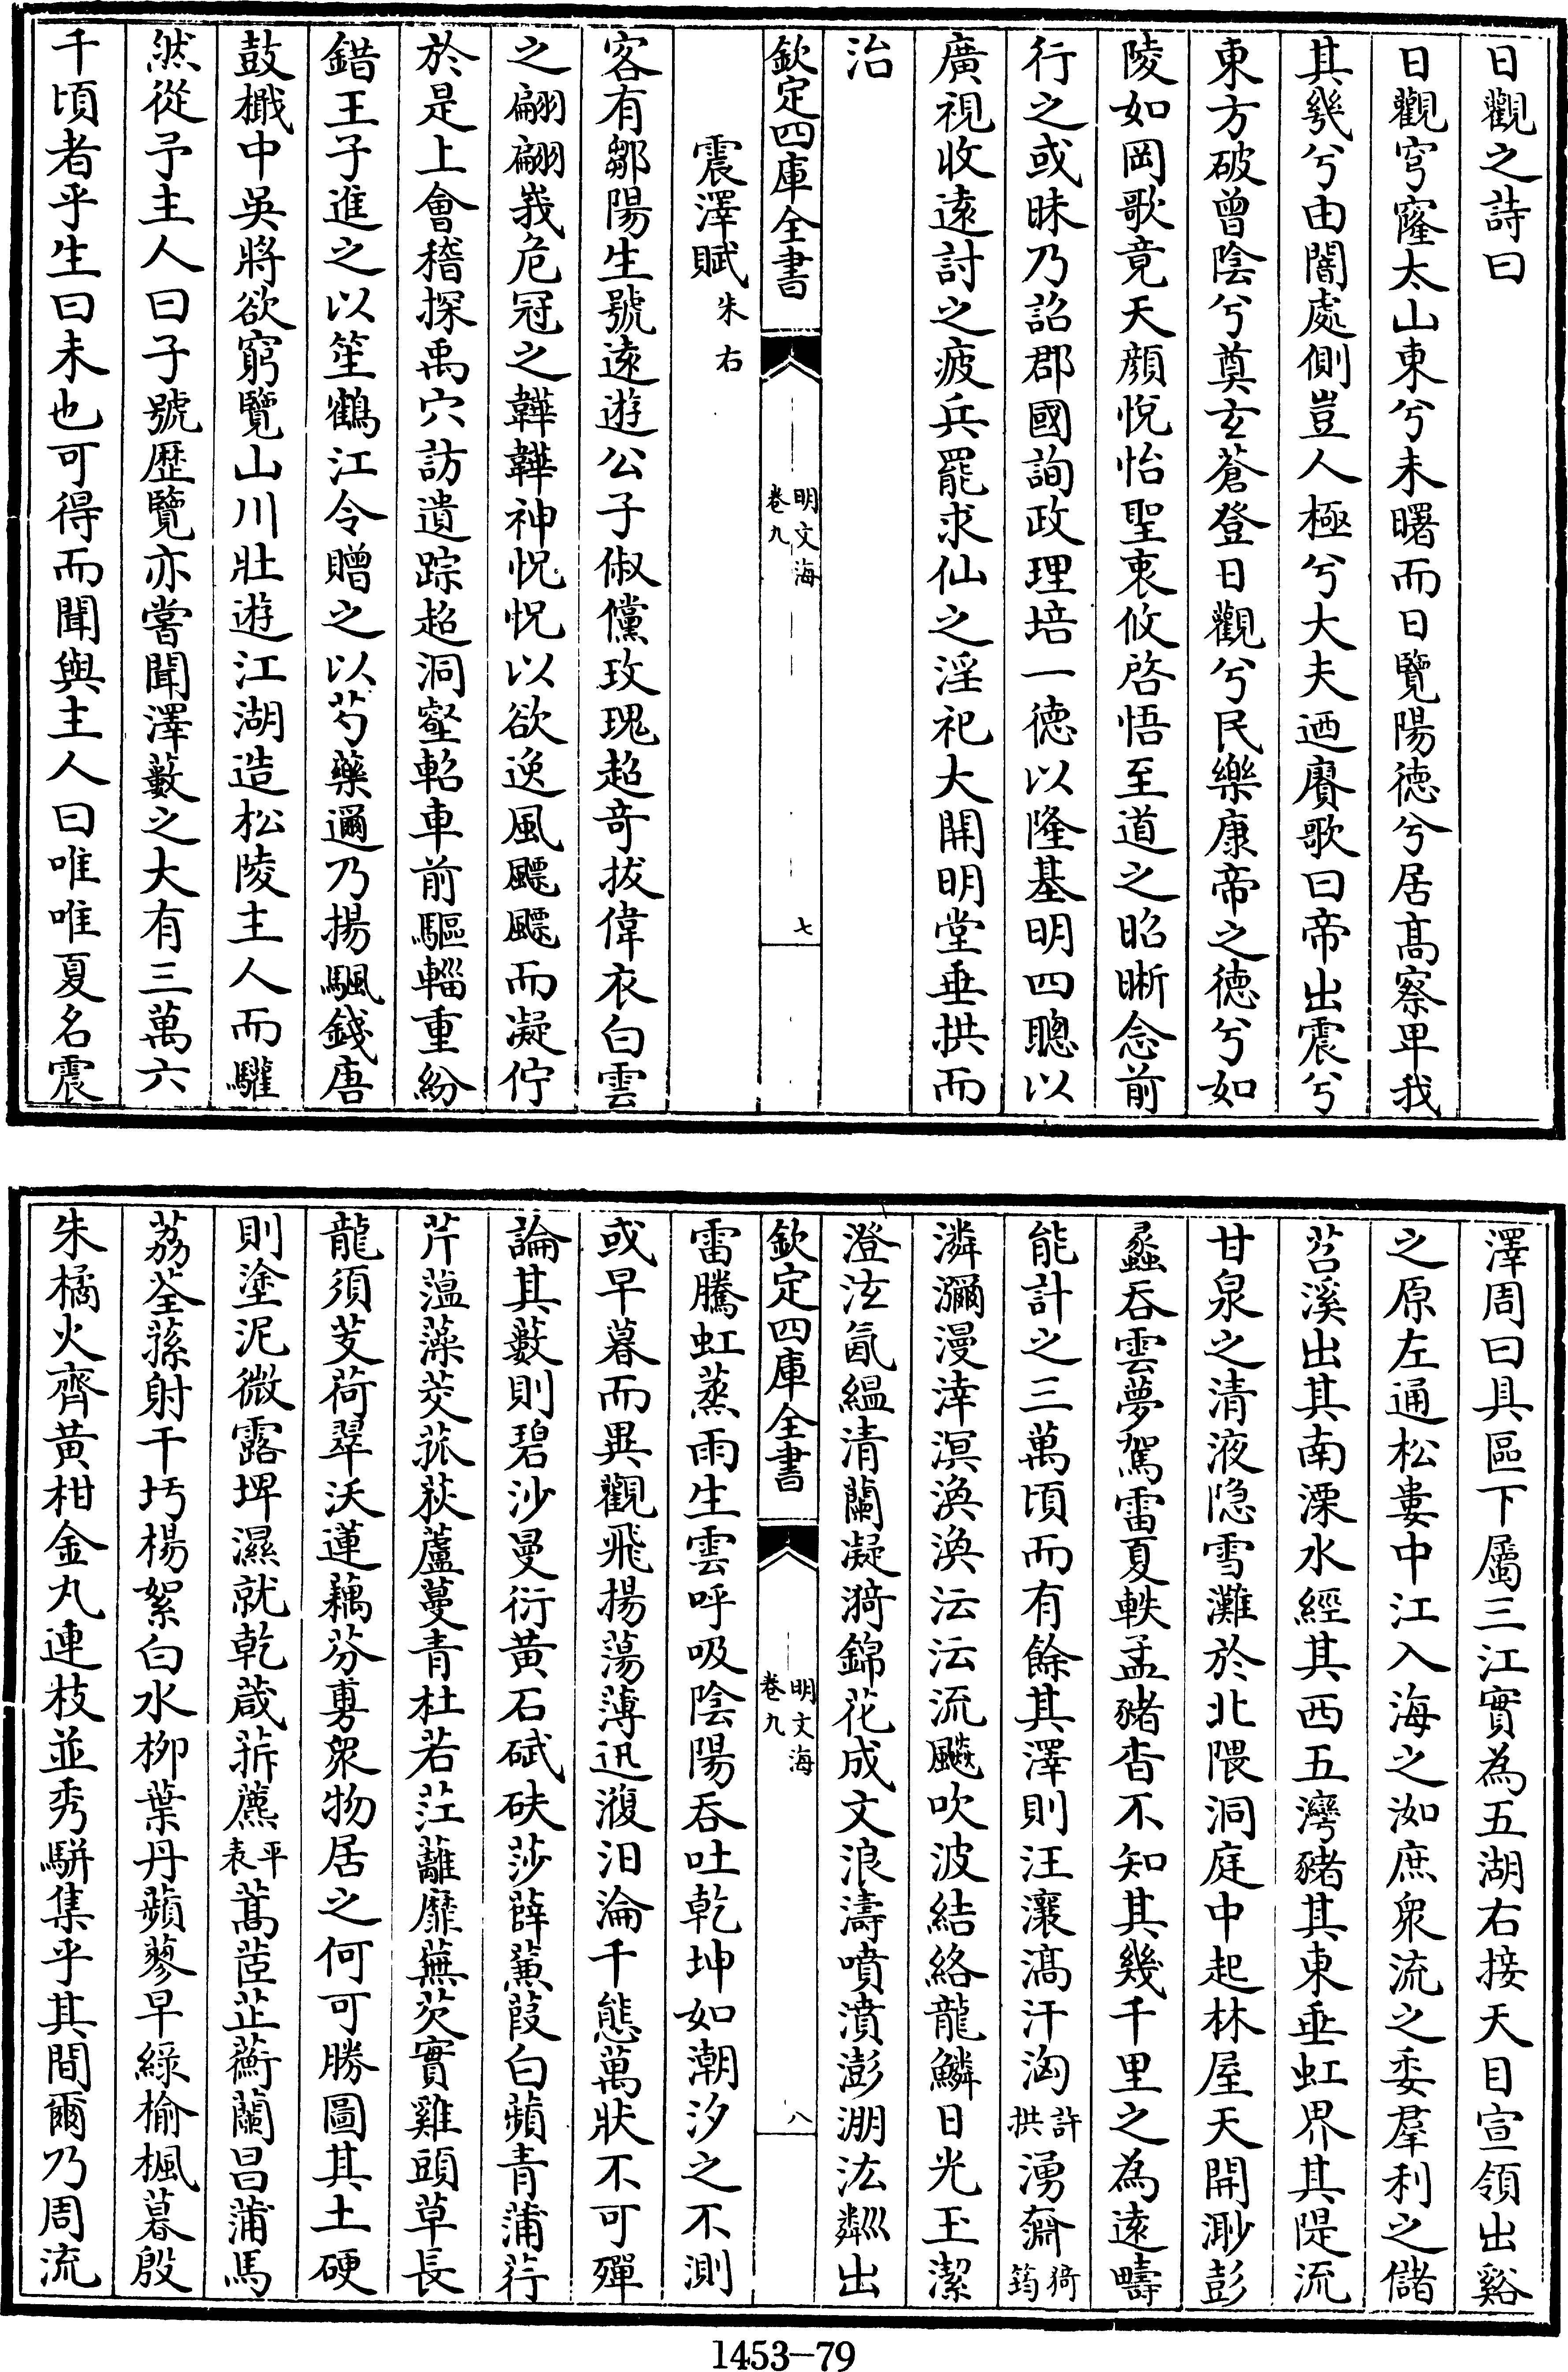 日觀之詩曰
日觀穹窿太山東兮未曙而日覽陽德兮居高察卑我
其幾兮由闇處側豈人極兮大夫迺賡歌曰帝出震兮
東方破曾陰兮奠玄蒼登日觀兮民樂康帝之德兮如
陵如岡歌竟天顔悅怡聖衷攸啓悟至道之昭晰念前
行之或昧乃詔郡國詢政理培一德以隆基明四聰以
廣視收遠討之疲兵罷求仙之淫祀大開明堂垂拱而
治
欽定四庫全書
明文海
卷九
七
震澤賦朱右
客有鄒陽生號遠遊公子俶儻玫瑰超奇拔偉衣白雲
之翩翩峩危冠之韡韡神怳怳以欲逸風飂飂而凝佇
於是上會稽探禹穴訪遺踪超洞壑軺車前驅輜重紛
錯王子進之以笙鶴江令贈之以芍藥邇乃揚颿錢唐
鼓檝中吳將欲窮覽山川壯遊江湖造松陵主人而驩
然從予主人曰子號歷覽亦嘗聞澤藪之大有三萬六
千頃者乎生曰未也可得而聞與主人曰唯唯夏名震
澤周曰具區下屬三江實為五湖右接天目宣領出谿
之原左通松婁中江入海之洳庶衆流之委羣利之儲
苕溪出其南溧水經其西五灣豬其東垂虹界其隄流
甘泉之清液隐雪灘於北隈洞庭中起林屋天開渺彭
蠡吞雲夢駕雷夏軼孟豬杳不知其幾千里之為遠疇
能計之三萬頃而有餘其澤則汪瀼滈汗洶許拱湧奫猗筠
潾瀰漫涬溟渙渙沄沄流飈吹波結絡龍鱗日光玉潔
澄泫氤緼清蘭凝漪錦花成文浪濤噴濆澎淜汯粼出
欽定四庫全書
明文海
卷九
八
雷騰虹蒸雨生雲呼吸陰陽吞吐乾坤如潮汐之不測
或早暮而異觀飛揚蕩薄迅澓汨淪千態萬狀不可殫
論其藪則碧沙曼衍黃石碔砆莎薛薰葭白蘋青蒲荇
芹薀藻茭菰荻蘆蔓青杜若茳蘺靡蕪芡實雞頭草長
龍須芰荷翠沃蓮藕芬旉衆物居之何可勝圖其土硬
則塗泥微露埤濕就乾葴菥藨平表蒿茝芷蘅蘭昌蒲馬
荔荃蓀射干圬楊絮白水柳葉丹蘋蓼早綠榆楓暮殷
朱橘火齊黃柑金丸連枝並秀駢集乎其間爾乃周流
1453-79